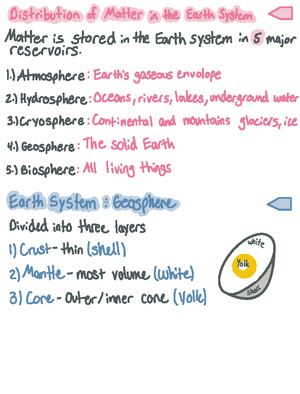 Distribution of Matter in the Earth System
Matter is stored in the Earth system in 5 major
reservoirs.
1.) Atmosphere: Earth's gaseous envolope
2.) Hydrosphere: Oceans, rivers, lakes, underground water
3.) Cryosphere: Continental and mountains glaciers, ice
4.) Geosphere: The solid Earth
5.) Biosphere: All living things
Earth System: Geosphere
Divided into three layers
1) Crust - thin (shell)
2) Mantle - most volume (white)
3) Core - Outer/inner core (Yolk)
white
Yolk
shell